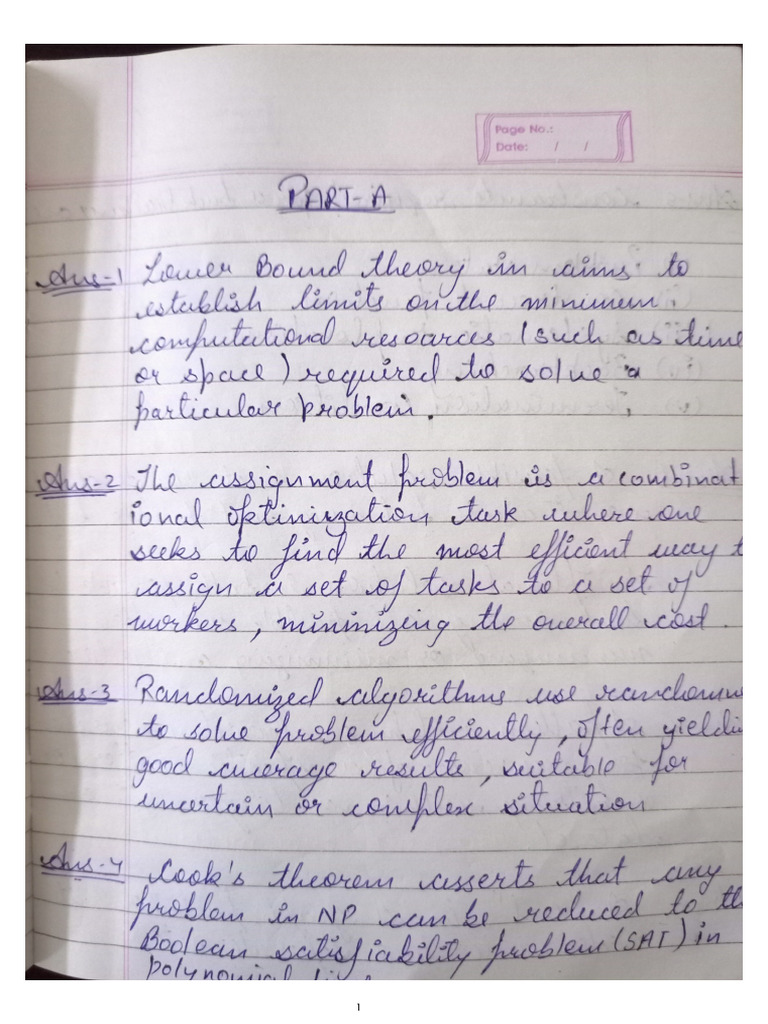 Page No.:
Date: / /
PART-A
Ans-1 Lower Bound theory in aims to
establish limits on the minimum
computational resources (such as time
or space) required to solve a
particular problem.
Ans-2 The assignment problem is a combinat
ional optinization task where one
seeks to find the most efficient way t
assign a set of tasks to a set of
workers, minimizing the overall cost.
Ans-3 Randomized algorithms use randomn
to solve problem efficiently, often yieldi
good average results, suitable for
uncertain or complex situation
Ans-4 Cook's theorem asserts that any
problem in NP can be reduced to th
Boolean satisfiability problem (SAT) in
polynomial
1